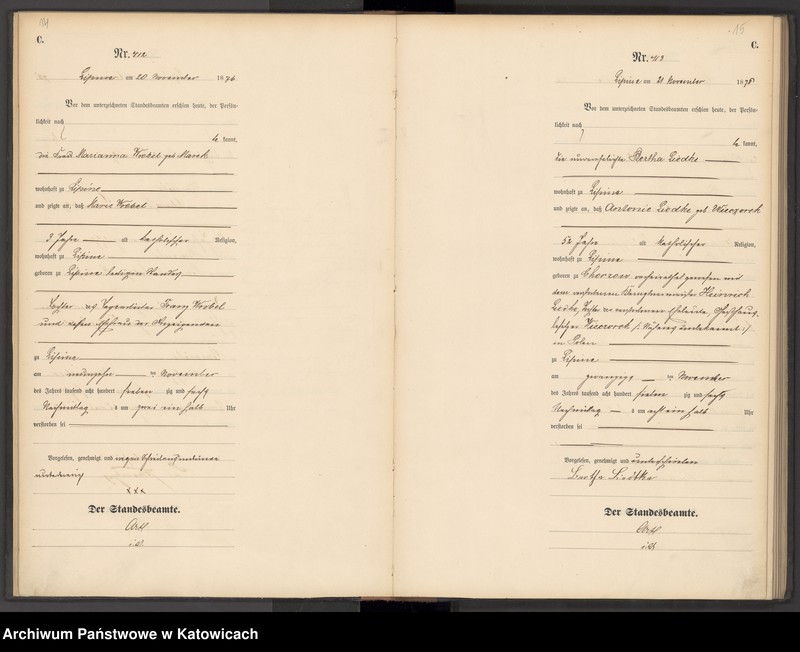 C.
Nr. 412
Lipine am 20 November 1876
Vor dem unterzeichneten Standesbeamten erschien heute, der Persön-
lichkeit nach
kannt,
die Frau Marianna Wrobel geb. Marek
wohnhaft zu Lipine
und zeigte an, daß Marie Wrobel
3 Jahre alt katholischer Religion,
wohnhaft zu Lipine
geboren zu Lipine ledigen Standes
Tochter des Tagearbeiter Franz Wrobel
und dessen Ehefrau der Anzeigenden
zu Lipine
am neunzehn ten November
des Jahres tausend acht hundert sieben zig und sechs
Nachmittag um zwei ein halb Uhr
verstorben sei
Vorgelesen, genehmigt und wegen Schreibensunkunde
unterkreuzt
xxx
Der Standesbeamte.
15
C.
Nr. 413
Lipine am 21 November 1876
Vor dem unterzeichneten Standesbeamten erschien heute, der Persön-
lichkeit nach
kannt,
die unverehelichte Bertha Liedke
wohnhaft zu Lipine
und zeigte an, daß Antonie Liedke geb. Wieczorek
52 Jahre alt katholischer Religion,
wohnhaft zu Lipine
geboren zu Chorzow verheirathet gewesen mit
dem verstorbenen Heinrich
Liedke, Tochter der verstorbenen Eheleute,
besitzer Wieczorek unbekannt
in Polen
zu Lipine
am zwanzig ten November
des Jahres tausend acht hundert sieben zig und sechs
Nachmittag um acht ein halb Uhr
verstorben sei
Vorgelesen, genehmigt und unterschrieben
Bertha Liedtke
Der Standesbeamte.
Archiwum Państwowe w Katowicach